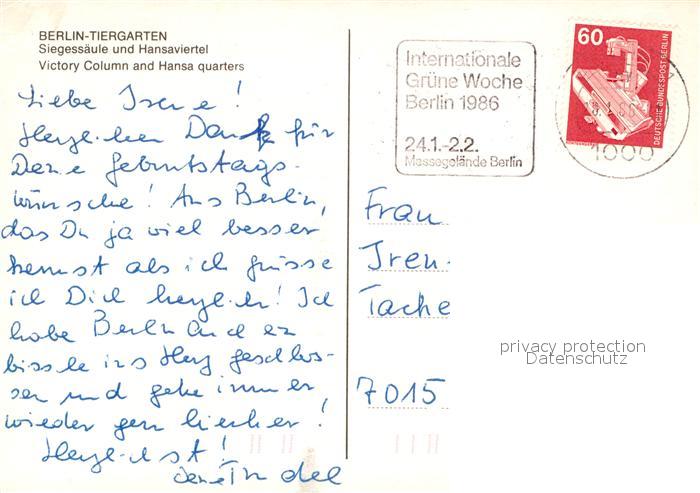 BERLIN-TIERGARTEN
Siegessäule und Hansaviertel
Victory Column and Hansa quarters
Liebe Irene!
Herzlichen Dank für
Deine Geburtstags-
wünsche! Aus Berlin,
das Du ja viel besser
kennst als ich grüsse
ich Dich herzlich! Ich
habe Berlin auch en
bissle ins Herz geschlos-
sen und gehe immer
wieder gern hierher!
Herzlichst!
Deine
Internationale
Grüne Woche
Berlin 1986
24.1.-2.2.
Messegelände Berlin
60
DEUTSCHE BUNDESPOST BERLIN
1000
Frau
Iren
Tache
7015
privacy protection
Datenschutz